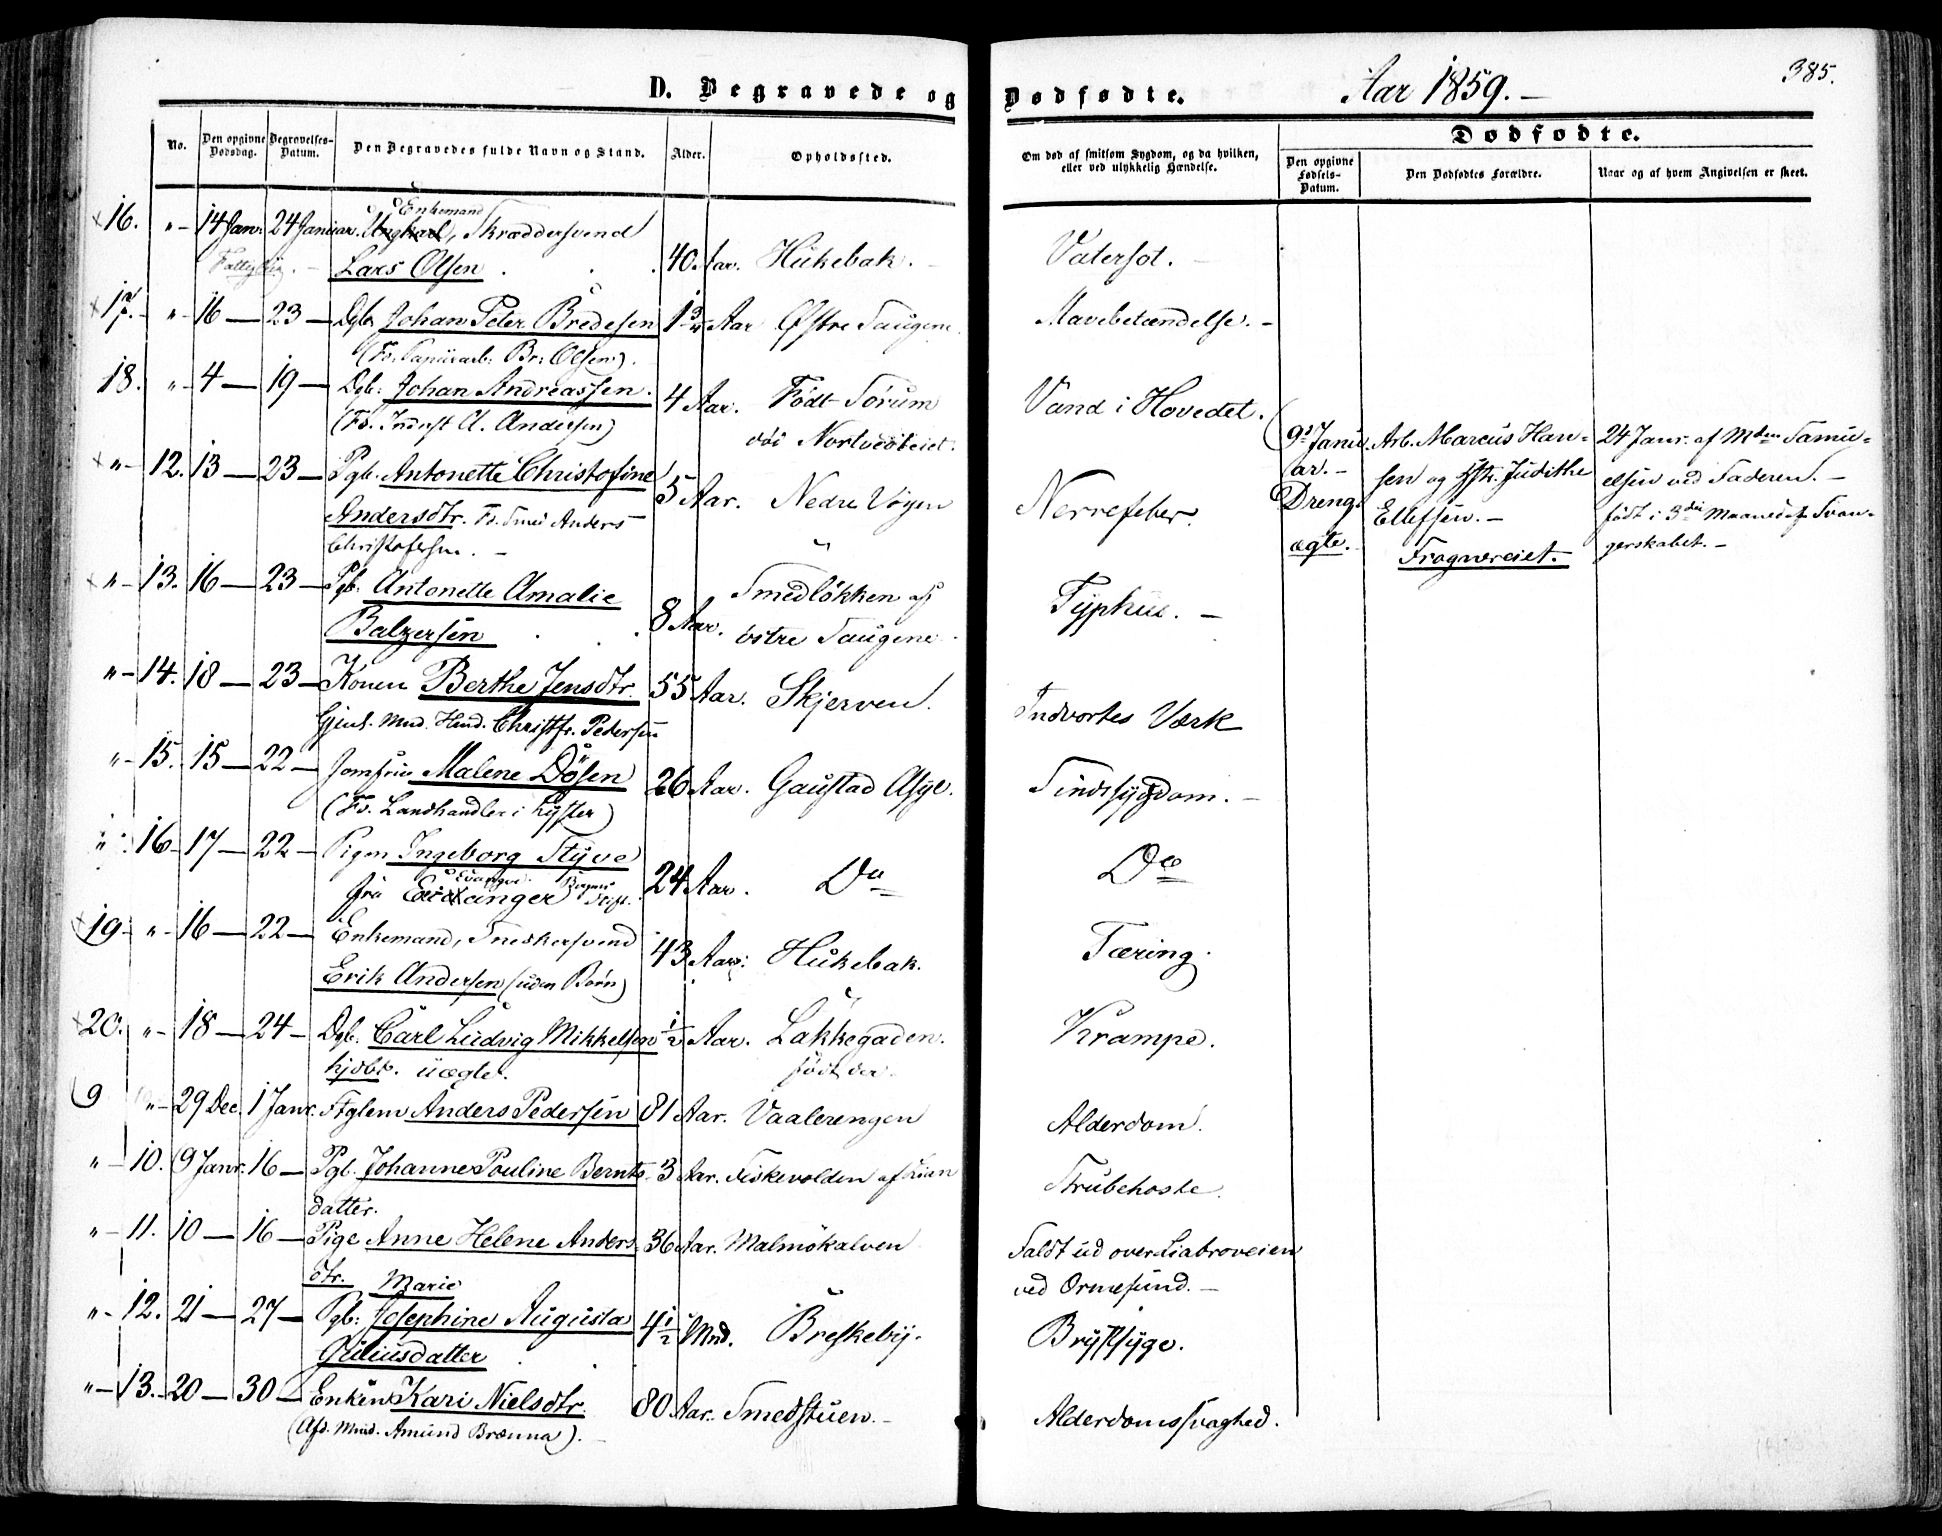 D. Begravede og Dødfødte. Aar 1859. – 385.
Dødfødte.
No. Den opgivne Dødsdag. Begravelses-Datum. Den Begravedes fulde Navn og Stand. Alder. Opholdssted. Om død af smitsom Sygdom, og da hvilken, eller ved ulykkelig Hændelse. Den opgivne Fødsels-Datum. Den Dødfødtes Forældre. Naar og af hvem Angivelsen er skeet.
Enkemand
16. " 14 Jan. 24 Januar. Ungkarl, Skræddersvend
Lars Olsen . . . 40. Aar. Hukebak. – Vatersot. –
17. – " 16 — 23 — Dgb. Johan Peter Bredesen 1 Aar Østre Saugene. Mavebetændelse. –
(Fr. Papiirarb. Br. Olsen).
18. " 4 — 19 — Dgb. Johan Andreassen. 4 Aar. Født Sørum Vand i Hovedet.
(Fr. Inderst A. Andersen)
" 12. 13 — 23 — Pgb. Antonette Christofine 5 Aar. Nedre Vøyen Nervefeber.
Andersdtr. Fr. Smed Anders
Christofersen. –
9de Janu-
ar. –
Dreng
ægte. –
Arb. Marcus Han-
sen og Hstr. Judithe
Ellefsen. –
Frogner eiet. –
24 Janr. af Mdm Samu-
elsen ved Faderen. –
født i 3die Maaned af Svan-
gerskabet. –
" 13. 16 — 23 — Pgb. Antonette Amalie Smedløkken af Typhus. –
Balzersen . . 8 Aar. østre Saugene.
" – 14. 18 — 23 — Konen Berthe Jensdtr. 55 Aar. Skjerven. Indvortes Værk
Gjenl. Mnd. Hmd. Christfr. Pedersen
" 15. 15 — 22 — Jomfru Malene Døsen 26 Aar. Gaustad Asyl. Sindssygdom. –
(Fr. Landhandler i Lyster)
" 16 17 — 22 — Pigen Ingeborg Styve 24 Aar. Do Do
fra Eidanger Stift.
19 " 16 — 22 — Enkemand, Snedkersvend 43 Aar. Hukebak. Tæring.
Erik Andersen (uden Børn)
20. " 18 — 24 — Dgb. Carl Ludvig Mikkelsen ½ Aar. Lakkegaden. Krampe.
hjdbt. uægte. født der.
9 " 29 Dec. 1 Janr. Fglem Anders Pedersen 81 Aar. Vaalerengen Alderdom.
" – 10. 9 Janr. 16 — Pgb. Johanne Pouline Bernts- 3 Aar. Fiskevolden af Lian Strubehoste.
datter.
" – 11. 10 — 16 — Pige Anne Helene Anders- 36 Aar. Malmøkalven Faldt ud over Liabroveien
dtr. ved Ormesund. –
Marie
" – 12. 21 — 27 — Pgb. Josephine Augusta 4½ Mnd. Breskeby. Brystsyge.
Juliusdatter
" – 13. – 20 — 30 — Enken Kari Nielsdtr. 80. Aar. Smedstuen. – Alderdomssvaghed.
(Afd. Mnd. Amund Brænna). –